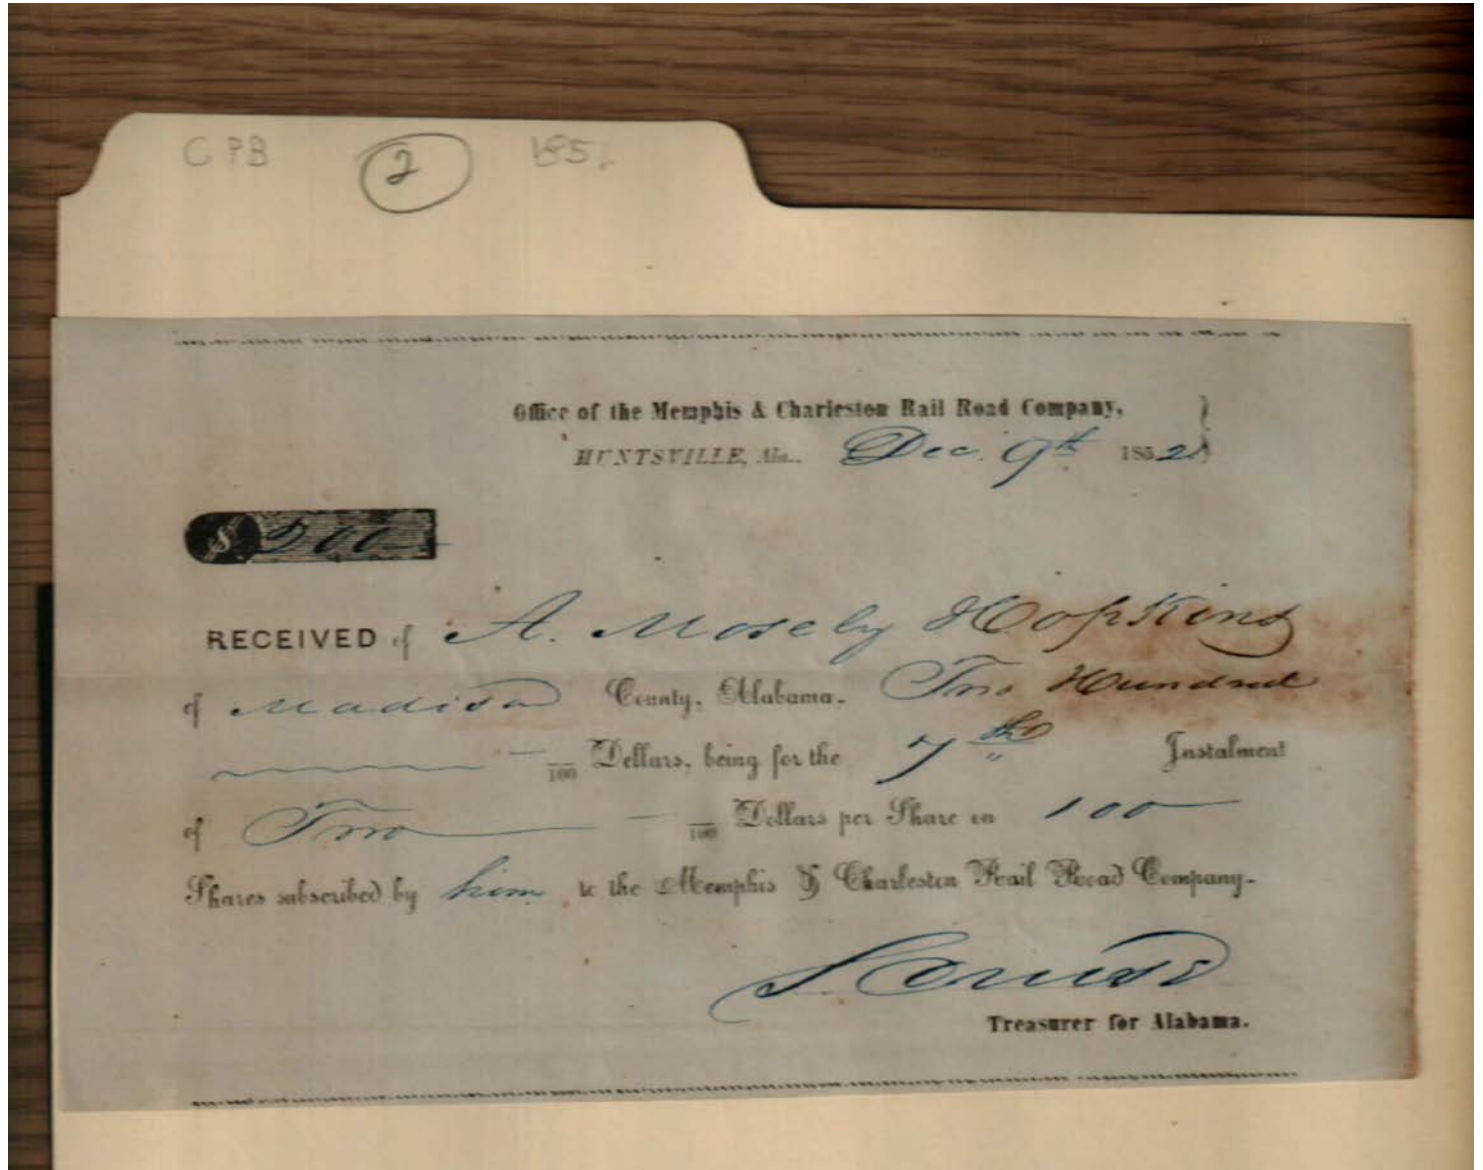 CPB 2 185
Office of the Memphis & Charleston Rail Road Company,
HUNTSVILLE, Ala., Dec. 9th 1852
$ 200
RECEIVED of A. Mosely Hopkins
of Madison County, Alabama. Two Hundred
/100 Dollars, being for the 7th Instalment
of Two /100 Dollars per Share on 100
Shares subscribed by him to the Memphis & Charleston Rail Road Company.
S. Cruse
Treasurer for Alabama.